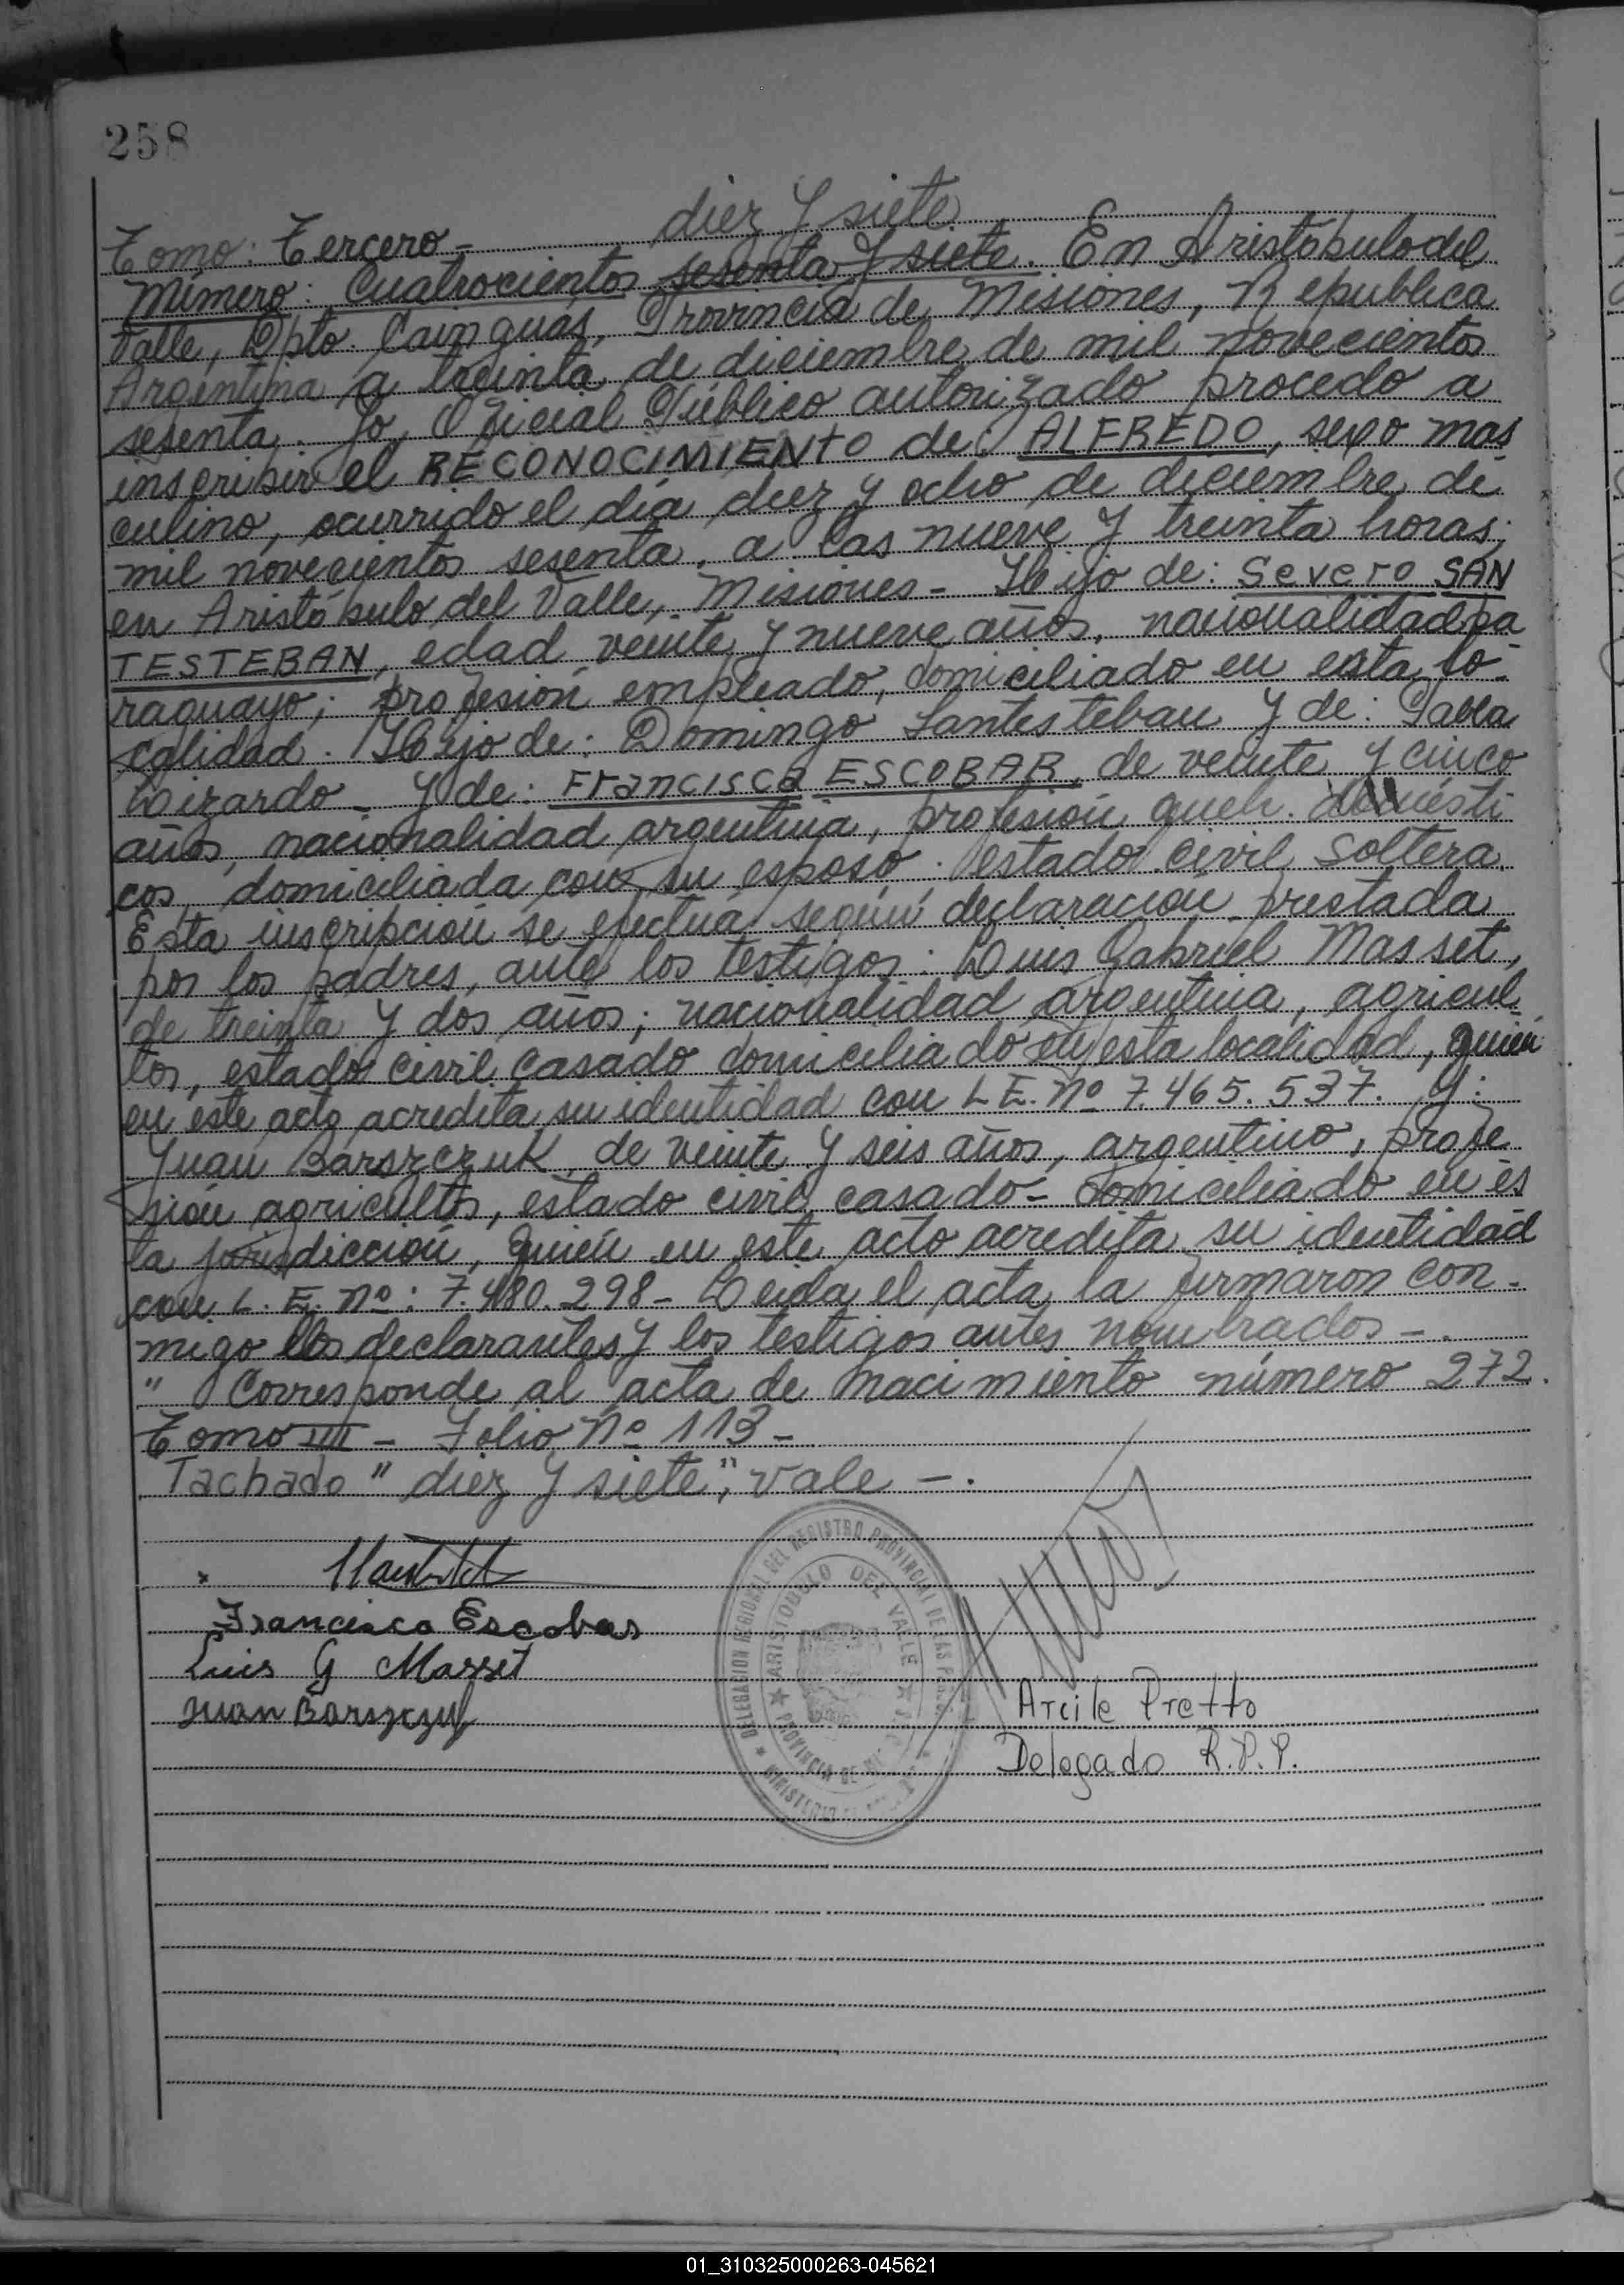 258
diez y siete
Tomo: Tercero -
Número: Cuatrocientos sesenta y siete. En Aristóbulo del
Valle, Dpto. Cainguás, Provincia de Misiones, Republica
Argentina a treinta de diciembre de mil novecientos
sesenta. Yo, Oficial Público autorizado procedo a
inscribir el RECONOCIMIENTO de: ALFREDO, sexo mas
culino, ocurrido el día diez y ocho de diciembre de
mil novecientos sesenta. a las nueve y treinta horas;
en Aristóbulo del Valle, Misiones - Hijo de: Severo SAN
TESTEBAN, edad veinte y nueve años, nacionalidad pa
raguayo; profesión empleado, domiciliado en esta lo-
calidad. Hijo de: Domingo Santesteban y de: Pabla
Lizardo - Y de: Francisca ESCOBAR, de veinte y cinco
años, nacionalidad argentina, profesión queh. domésti
cos, domiciliada con su esposo. estado civil soltera.
Esta inscripción se efectua según declaración prestada
por los padres, ante los testigos: Luis Gabriel Masset,
de treinta y dos años; nacionalidad argentina, agricul-
tor, estado civil casado domiciliado en esta localidad, quién
en este acto acredita su identidad con L E. Nº 7.465.537. Y:
Juan Barszczuk, de veinte y seis años, argentino, profe
sión agricultor, estado civil casado - domiciliado en és
ta jurisdicción, quién en este acto acredita su identidad
con L. E. nº: 7.480.298 - Leida el acta la firmaron con-
migo los declarantes y los testigos antes nombrados -.
" Corresponde al acta de Nacimiento número 272.
Tomo III - Folio Nº 113 -
Tachado " diez y siete", vale -.
Francisca Escobar
Luis G Masset
Juan Barszczuk
DELEGACION REGIONAL DEL REGISTRO PROVINCIAL DE LAS
ARISTOBULO DEL VALLE
PROVINCIA DE
MINISTERIO
Arcile Pretto
Delegado R.P.P.
01_310325000263-045621